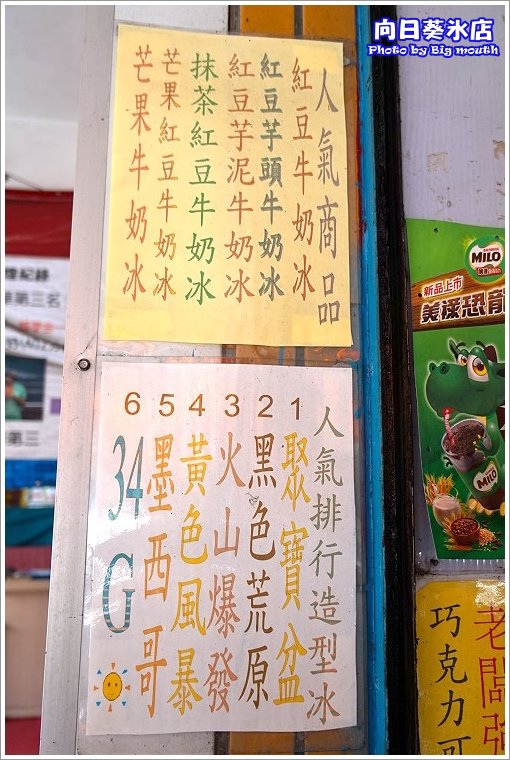 向日葵氷店
Photo by Big mouth
人氣商品
紅豆牛奶冰
紅豆芋頭牛奶冰
紅豆芋泥牛奶冰
抹茶紅豆牛奶冰
芒果紅豆牛奶冰
芒果牛奶冰
人氣排行造型冰
1 聚寶盆
2 黑色荒原
3 火山爆發
4 黃色風暴
5 墨西哥
6 34G
MILO
新品上市
美祿恐龍
MILO
老闆
巧克力可
第三名
第三